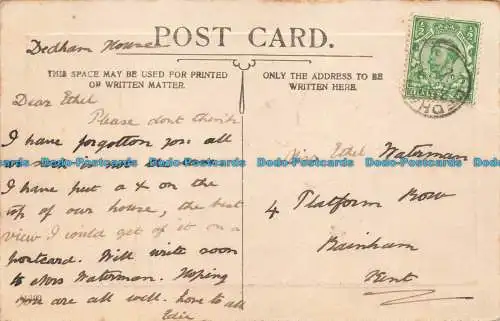 Dedham House
POST CARD.
THIS SPACE MAY BE USED FOR PRINTED
OR WRITTEN MATTER.
ONLY THE ADDRESS TO BE
WRITTEN HERE.
Dear Ethel
Please dont think
I have forgotton you all
I have put a x on the
top of our house, the best
view I could get of it on a
postcard. Will write soon
to Mrs Waterman. Hoping
you are all well. love to all
Edie
Miss Ethel Waterman
4 Platform Row
Rainham
Kent
Dodo-Postcards Dodo-Postcards Dodo-Postcards Dodo-Postcards